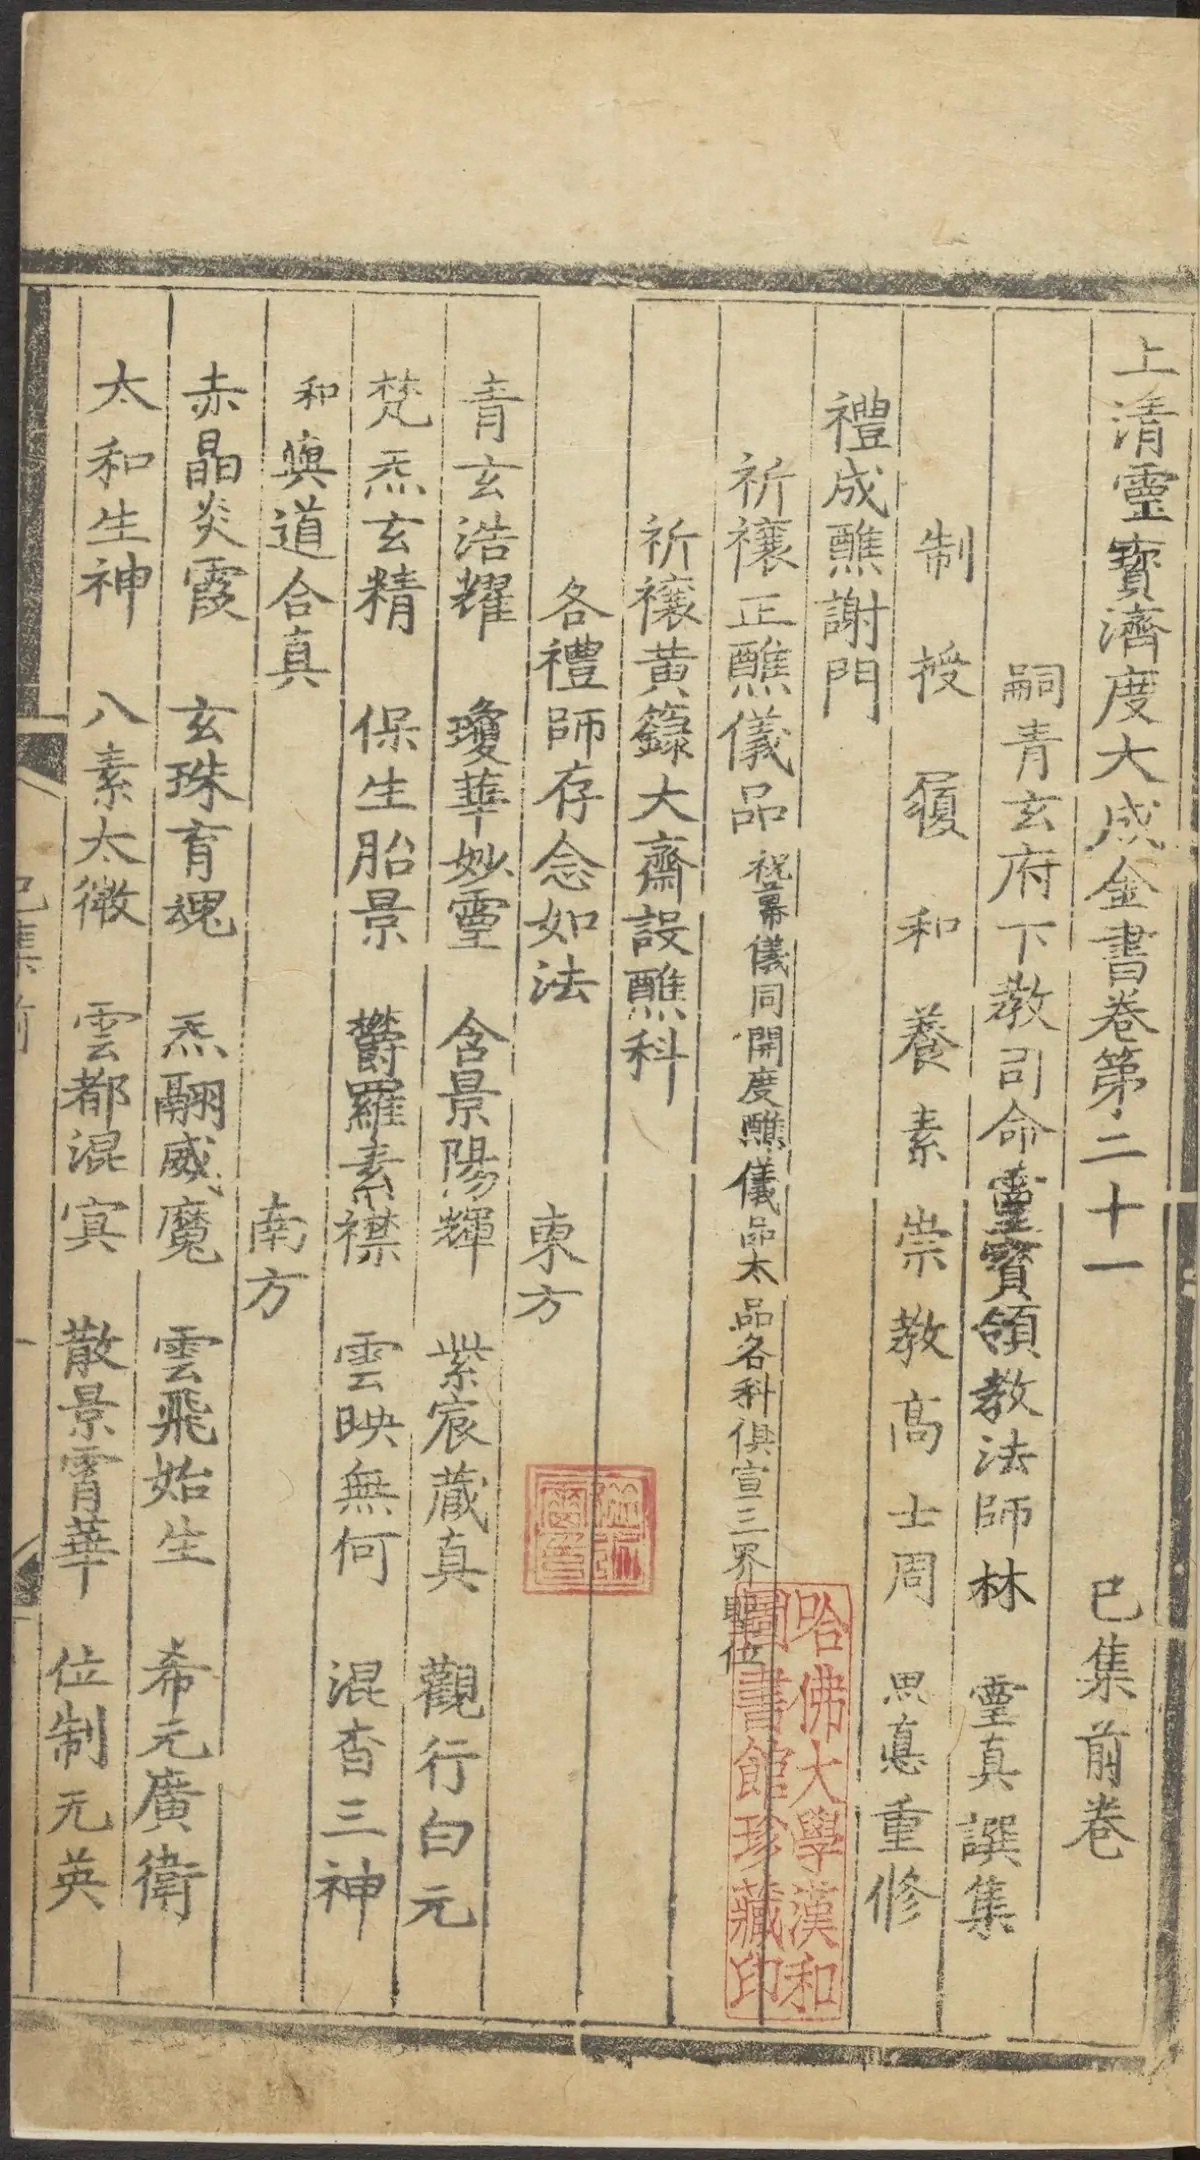 上清靈寳濟度大成金書卷第二十一 已集前卷
嗣青玄府下教司命靈寳領教法師林 靈真譔集
制授履和養素崇教高士周 思悳重修
禮成醮謝門
祈禳正醮儀品 祝幕儀同開度醮儀品太品各科俱宣三界 位
祈禳黄籙大齋設醮科
各禮師存念如法
東方
青玄浩耀 瓊華妙靈 含景陽輝 紫宸蔵真 觀行白元
梵炁玄精 保生胎景 欝羅素襟 雲映無何 混杳三神
和與道合真
南方
赤晶炎霞 玄珠育魂 炁翮威魔 雲飛始生 希元廣衛
太和生神 八素太微 雲都混㝠 散景霄華 位制元英
已集前
哈佛大學漢和
圖書館珍藏印